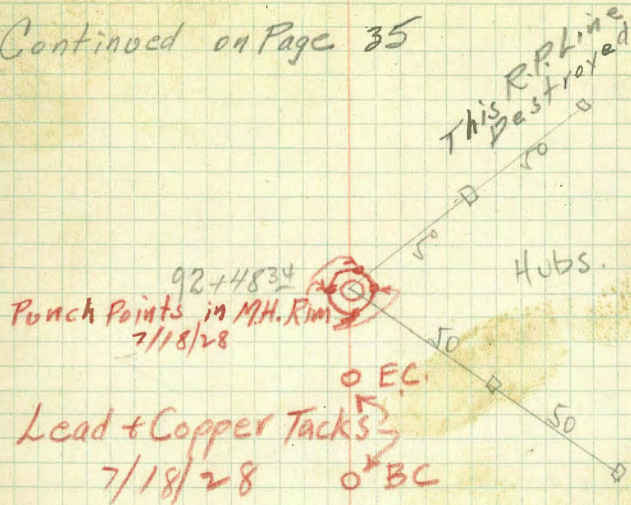 Continued on Page 35
This R.P. Line
Destroyed
50
50
92+48 34
Hubs.
Punch Points in M.H. Rim
7/18/28
50
E.C.
50
Lead + Copper Tacks
7/18/28
BC